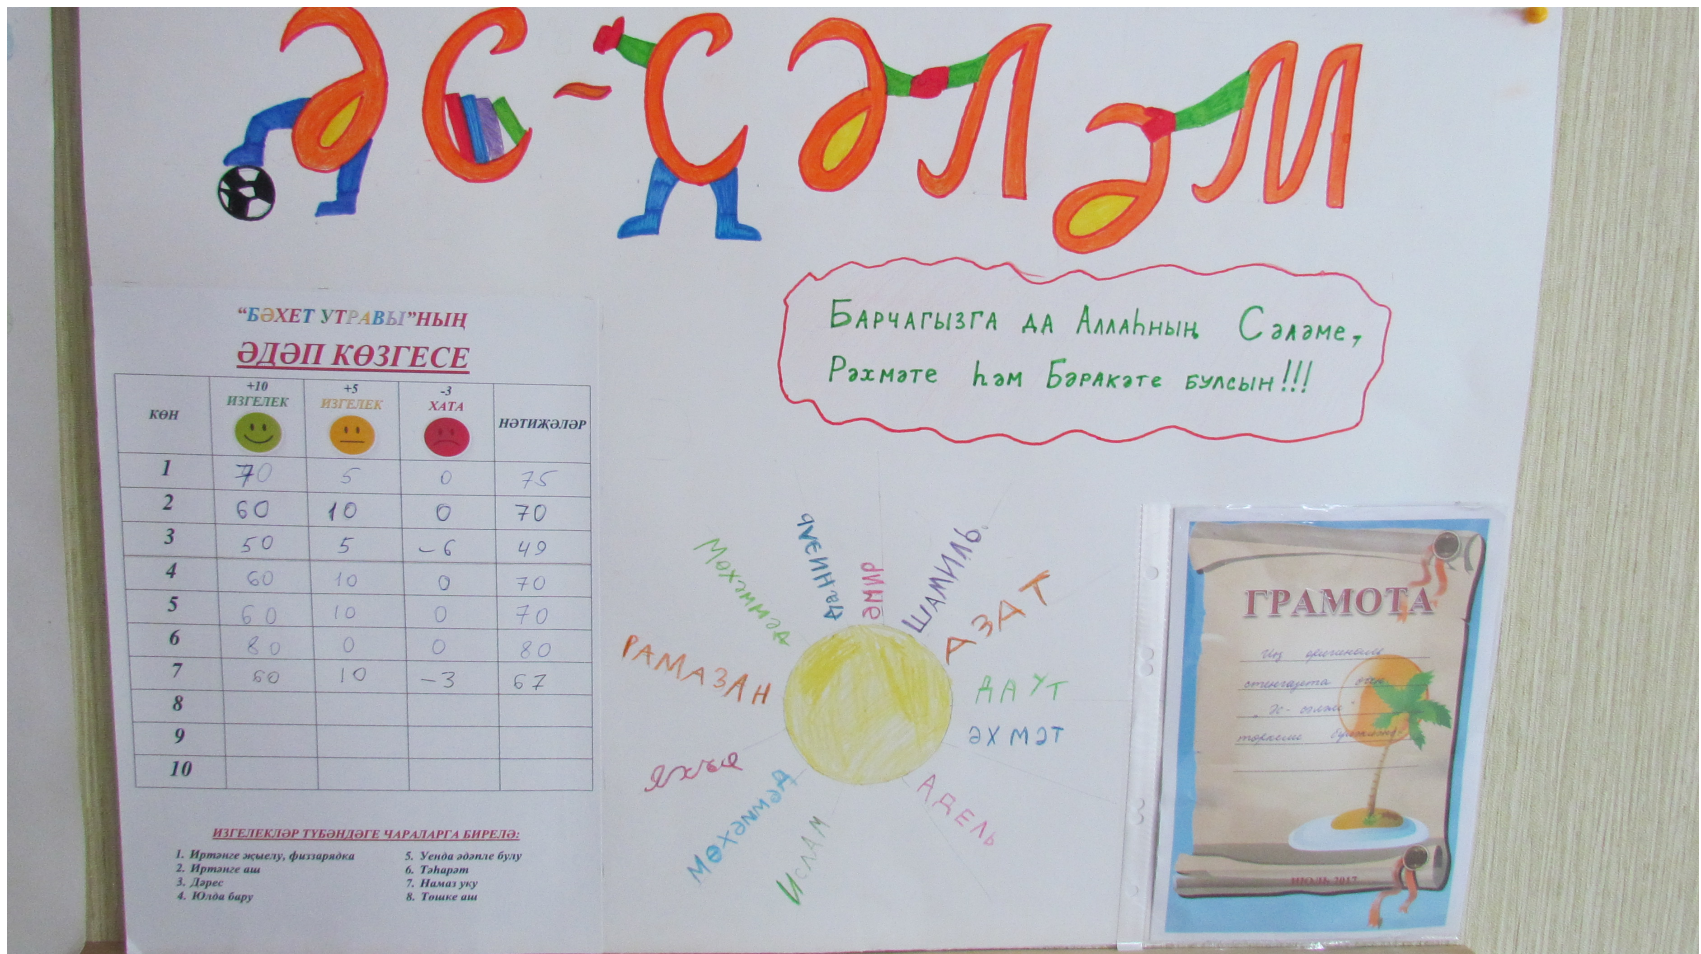 ӘС-СӘЛӘМ
БАРЧАГЫЗГА ДА АЛЛАҺНЫҢ СӘЛӘМЕ,
РӘХМӘТЕ ҺӘМ БӘРАКӘТЕ БУЛСЫН!!!
“БӘХЕТ УТРАВЫ”НЫҢ
ӘДӘП КӨЗГЕСЕ
КӨН +10 ИЗГЕЛЕК +5 ИЗГЕЛЕК -3 ХАТА НӘТИҖӘЛӘР
1 70 5 0 75
2 60 10 0 70
3 50 5 -6 49
4 60 10 0 70
5 60 10 0 70
6 80 0 0 80
7 60 10 -3 67
8
9
10
ИЗГЕЛЕКЛӘР ТҮБӘНДӘГЕ ЧАРАЛАРГА БИРЕЛӘ:
1. Иртәнге җыелу, физзарядка
2. Иртәнге аш
3. Дәрес
4. Юлда бару
5. Уенда әдәпле булу
6. Тәһарәт
7. Намаз уку
8. Төшке аш
МӨХӘММӘД
ДАНИЭЛЬ
ӘМИР
ШАМИЛЬ
АЗАТ
ДАУТ
ӘХМӘТ
АДЕЛЬ
ИСЛАМ
МӨХӘММӘД
ЯХЪЯ
РАМАЗАН
ГРАМОТА
Иң оригиналь
стенгазета өчен
„Әс-сәләм"
төркеме бүләкләнә
ИЮЛЬ 2017